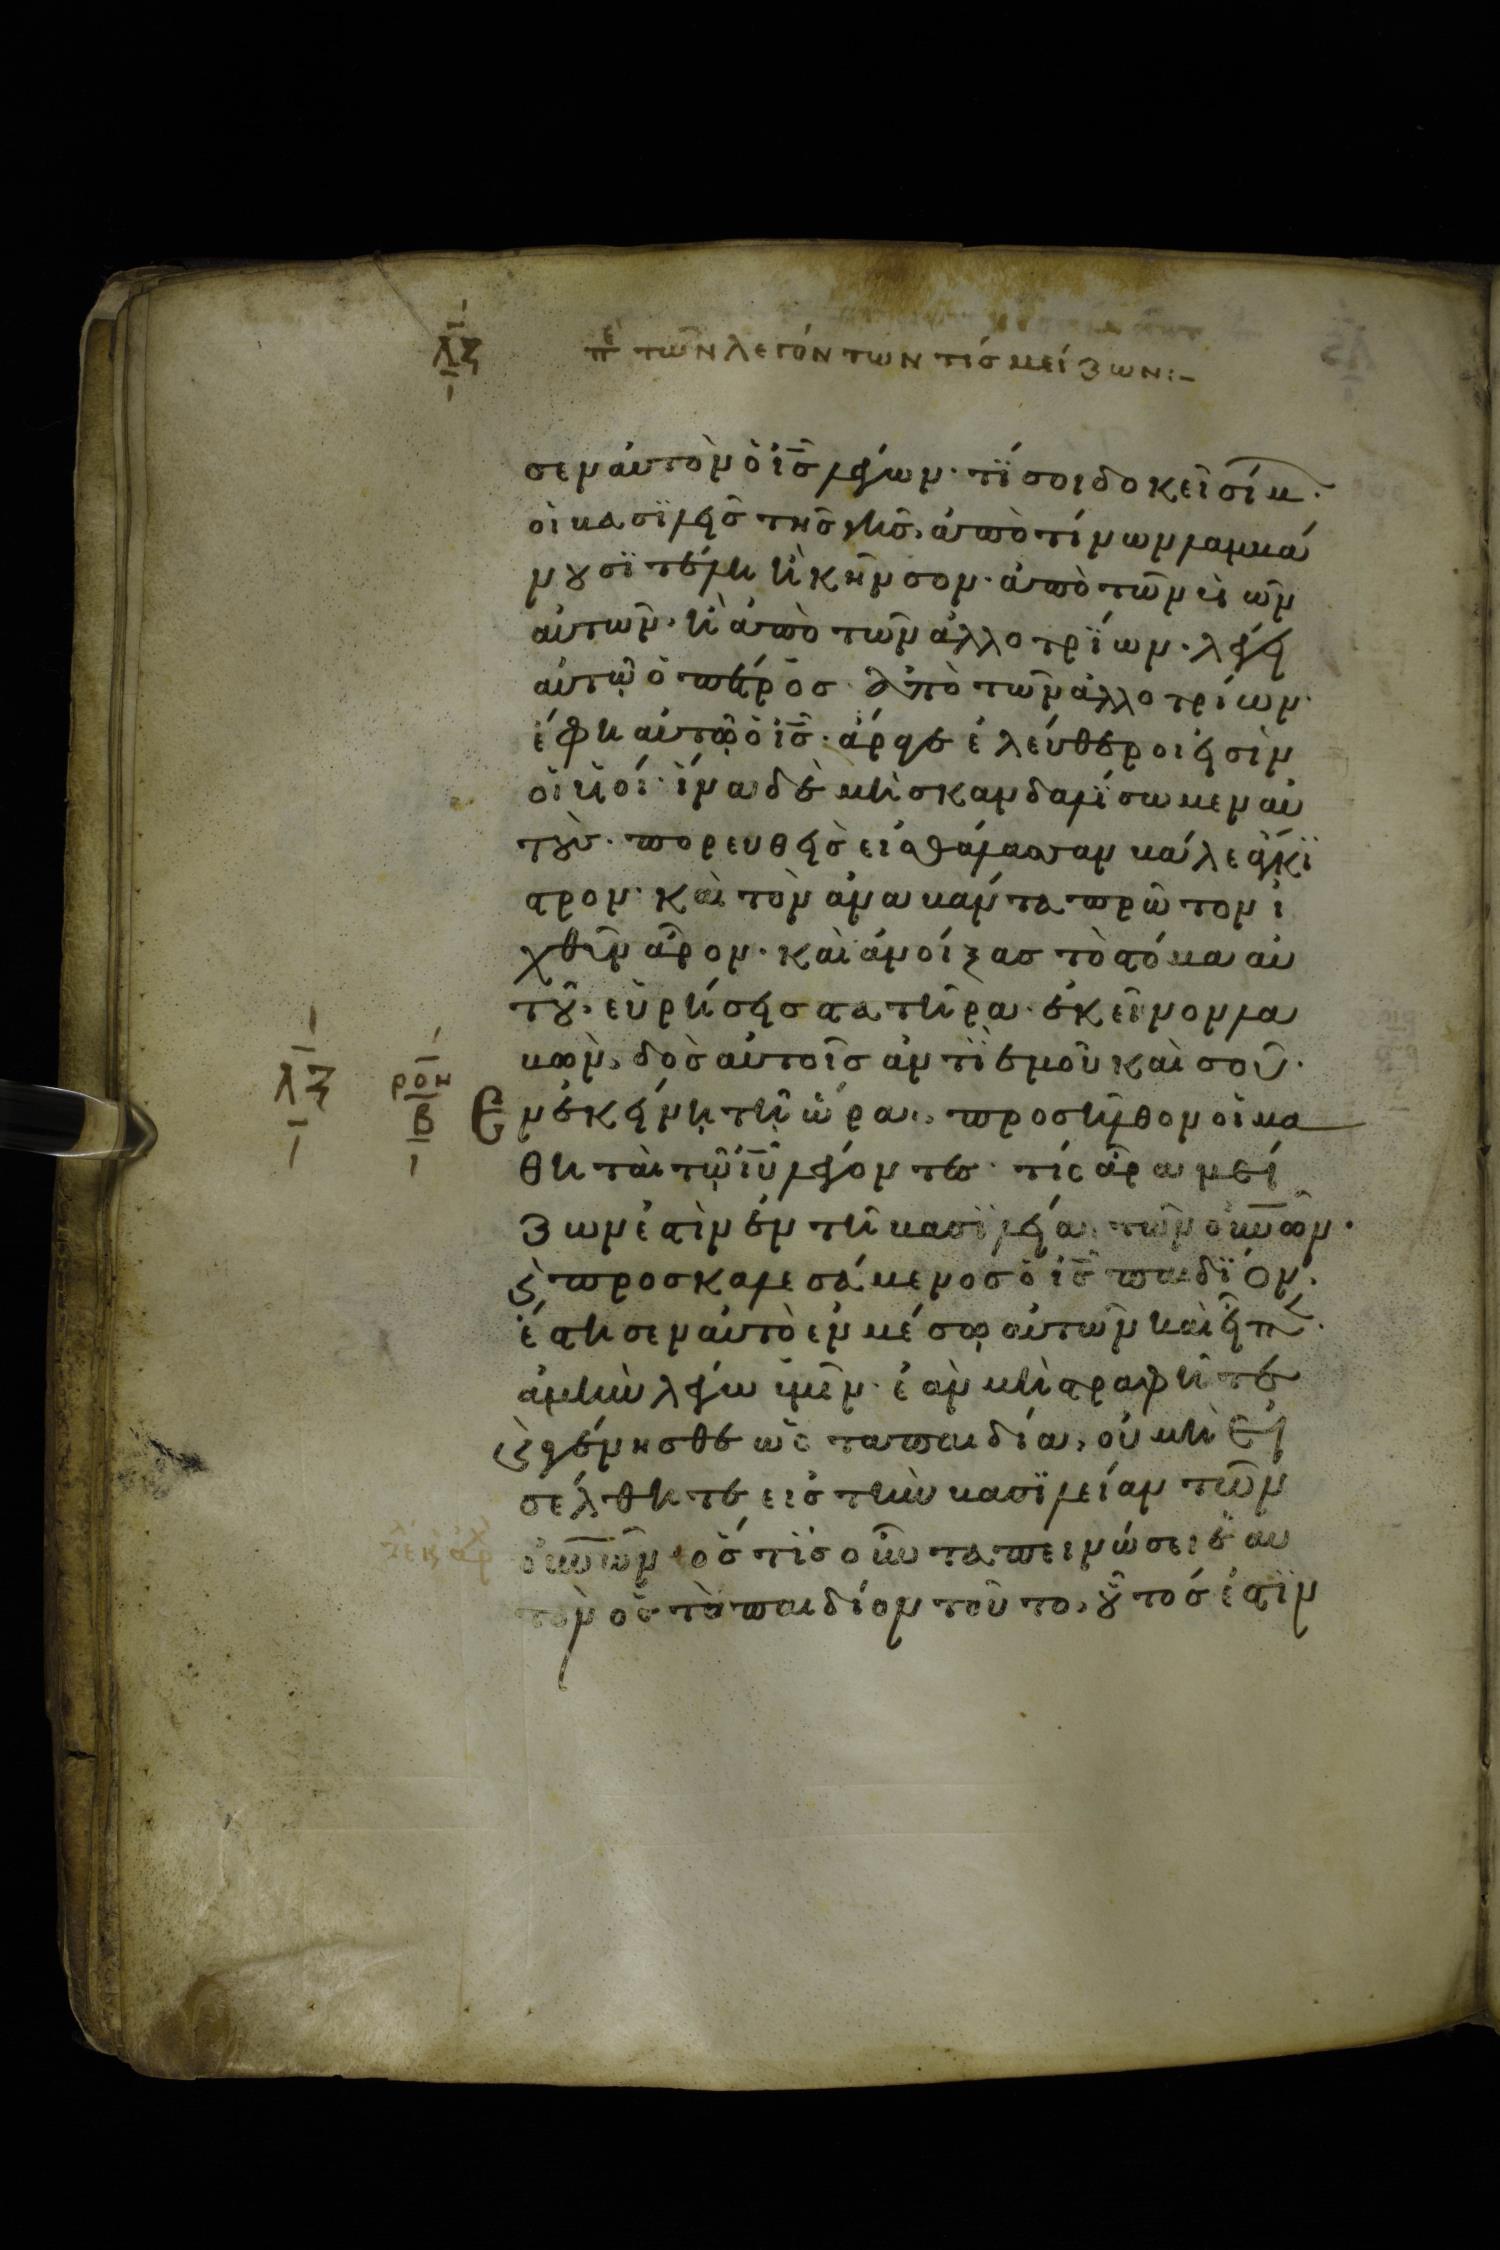 λζ πε τῶν λεγόντων τίς μείζων:-
σεν αὐτὸν ὁ ις̄ λέγων· τί σοι δοκεῖ σίμ·
οἱ βασιλεῖς τῆς γῆς, ἀπὸ τίνων λαμβά
νουσι τέλη ἢ κῆνσον· ἀπὸ τῶν υἱῶν
αὐτῶν· ἢ ἀπὸ τῶν ἀλλοτρίων· λέγει
αὐτῷ ὁ πέτρος· ἀπὸ τῶν ἀλλοτρίων·
ἔφη αὐτῷ ὁ ις̄· ἄραγε ἐλεύθεροι εἰσὶν
οἱ υἱοί· ἵνα δὲ μὴ σκανδαλίσωμεν αὐ
τούς· πορευθεὶς εἰς θάλασσαν βάλε ἄγκι
στρον· καὶ τὸν ἀναβάντα πρῶτον ἰ
χθῦν ἆρον· καὶ ἀνοίξας τὸ στόμα αὐ
τοῦ, εὑρήσεις στατῆρα· ἐκεῖνον λα
βὼν, δὸς αὐτοῖς ἀντὶ ἐμοῦ καὶ σοῦ·
λζ ροη β Ἐν ἐκείνῃ τῇ ὥρα, προσῆλθον οἱ μα
θηταὶ τῷ ιῡ λέγοντες· τίς ἄρα μεί
ζων ἐστὶν ἐν τῇ βασιλεία τῶν οὐνῶν·
ϗ προσκαλεσάμενος ὁ ις̄ παιδίον·
ἔστησεν αὐτὸ ἐν μέσῳ αὐτῶν καὶ εἶπ·
ἀμὴν λέγω ὑμῖν· ἐὰν μὴ στραφῆτε
ϗ γένησθε ὡς τὰ παιδία, οὐ μὴ εἰ
σέλθητε εἰς τὴν βασιλείαν τῶν
οὐνῶν ὅστις οὖν ταπεινώσει ἑαυ
τὸν ὡς τὸ παιδίον τοῦτο, οὗτός ἐστιν